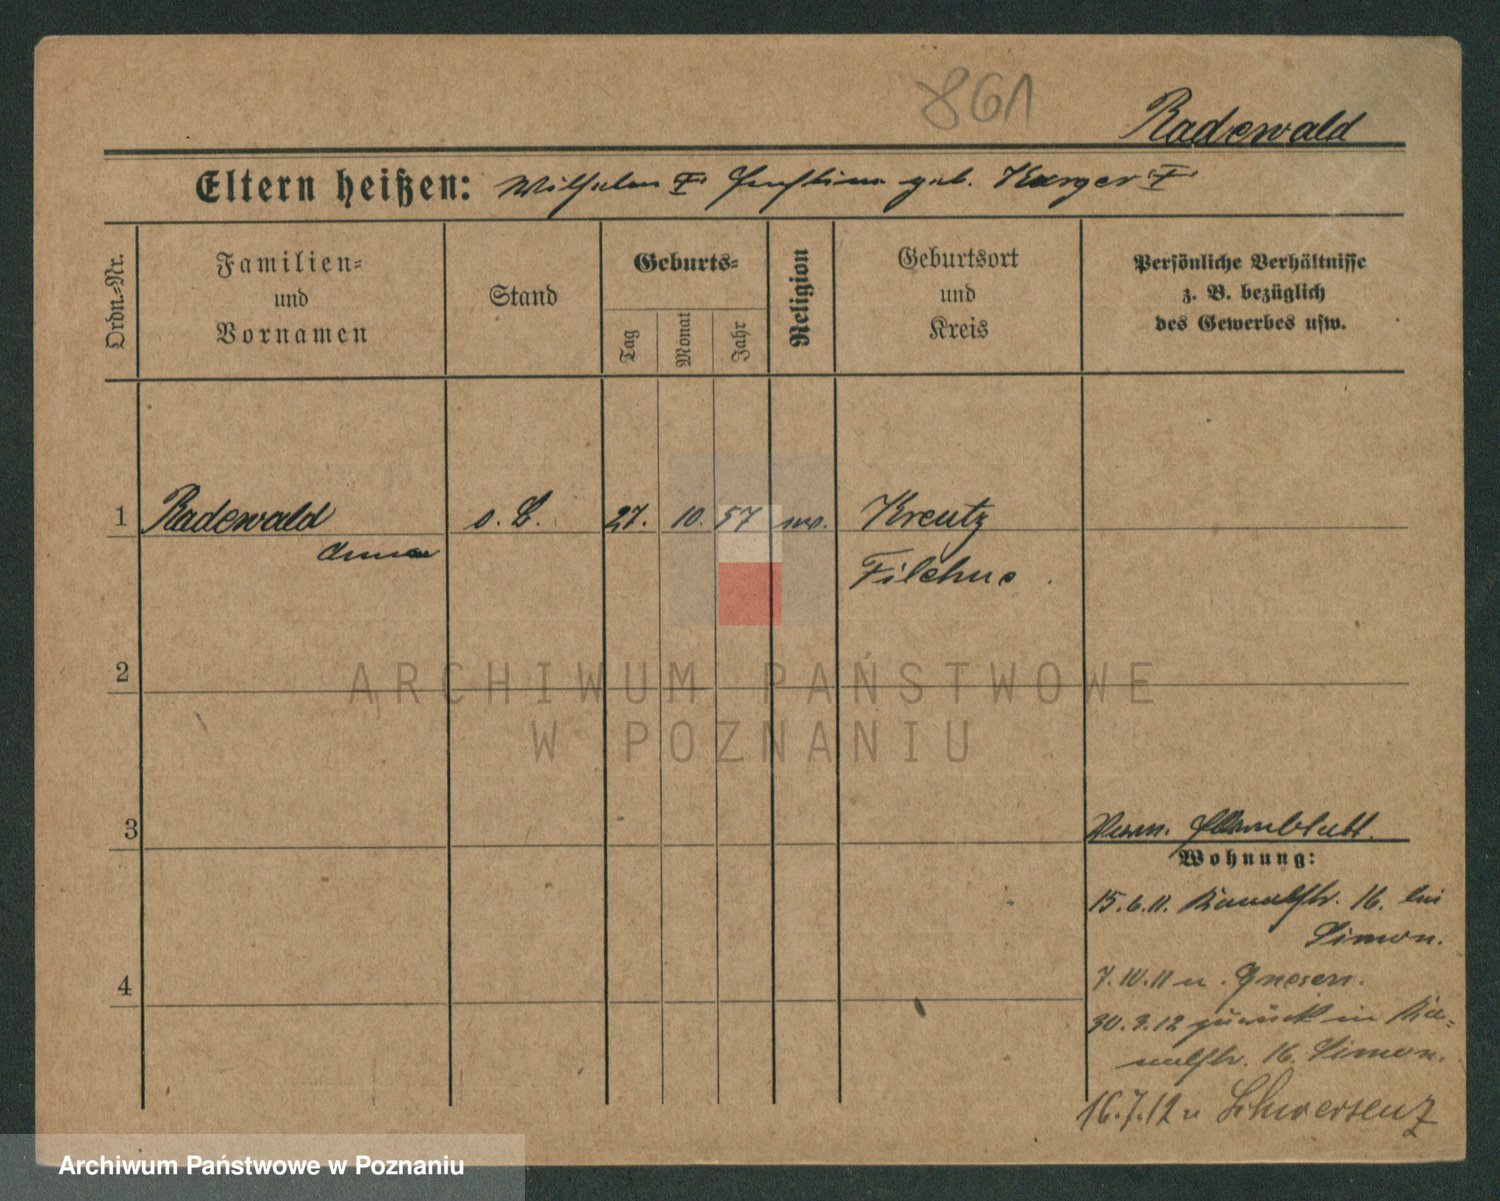 861
Radewald
Eltern heißen: Wilhelm geb. Karger
Ordn.-Nr.
Familien-
und
Vornamen
Stand
Geburts-
Tag
Monat
Jahr
Religion
Geburtsort
und
Kreis
Persönliche Verhältnisse
z. B. bezüglich
des Gewerbes usw.
1 Radewald 27. 10. 57 Kreutz
Anna Filehne
2
ARCHIWUM PAŃSTWOWE
W POZNANIU
3
Wohnung:
15.6.11. Kanalstr. 16. bei
Simon.
4
7.10.11 n. Gnesen.
30.3.12 zurück in Ka=
nalstr. 16. Simon.
16.7.12 n Schwersenz
Archiwum Państwowe w Poznaniu